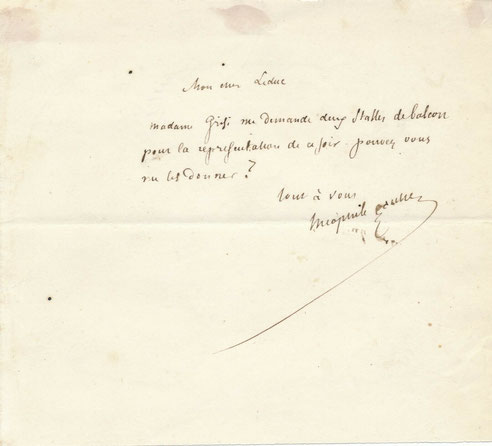 Mon cher Leduc
madame Grisi me demande deux stalles de balcon
pour la représentation de ce soir. pouvez vous
me les donner?
tout à vous
Théophile Gautier